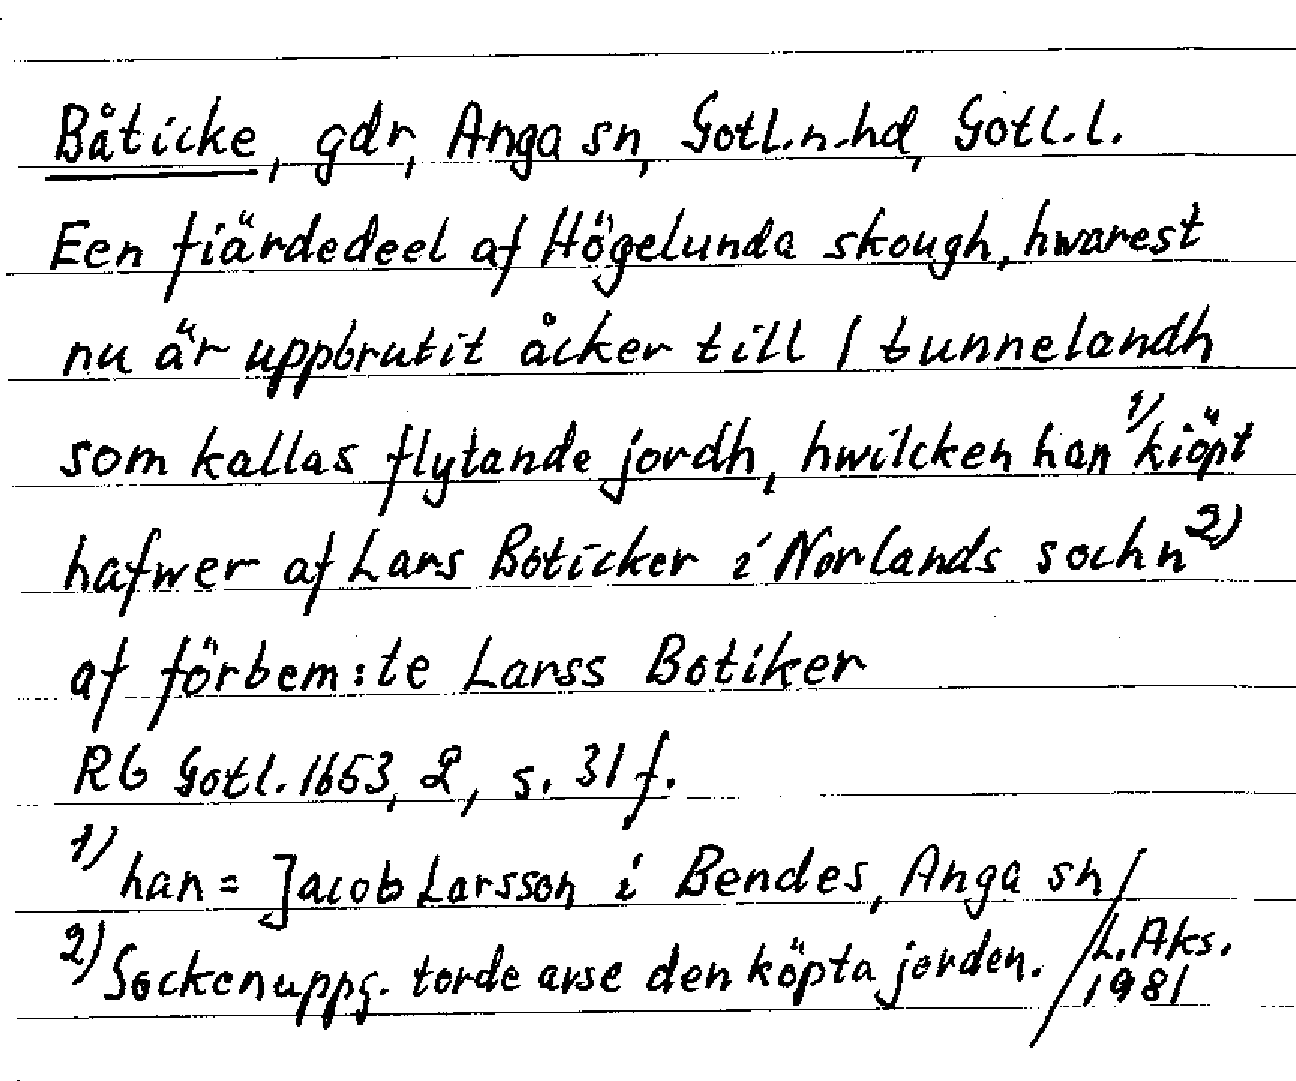 Båticke, gdr, Anga sn, Gotl.n.hd, Gotl.l.
Een fiärdedeel af Högelunda skough, hwarest
nu är uppbrutit åcker till 1 tunnelandh
som kallas flytande jordh, hwilcken han 1) kiöpt
hafwer af Lars Boticker i Norlands sochn 2)
af förbem:te Larss Botiker
RB Gotl. 1653, 2, s. 31 f.
1) han = Jacob Larsson i Bendes, Anga sn
2) Sockenuppg. torde avse den köpta jorden.
L. Aks.
1981